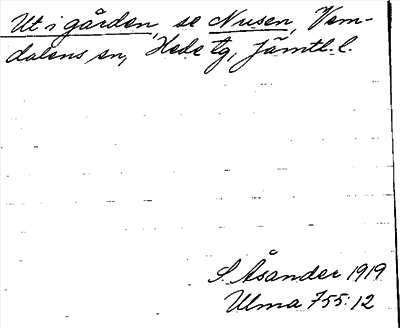 Ut i gården, se Nusen, Vem-
dalens sn, Hede tg, Jämtl. l.
S. Åsander 1919
Ulma 755:12